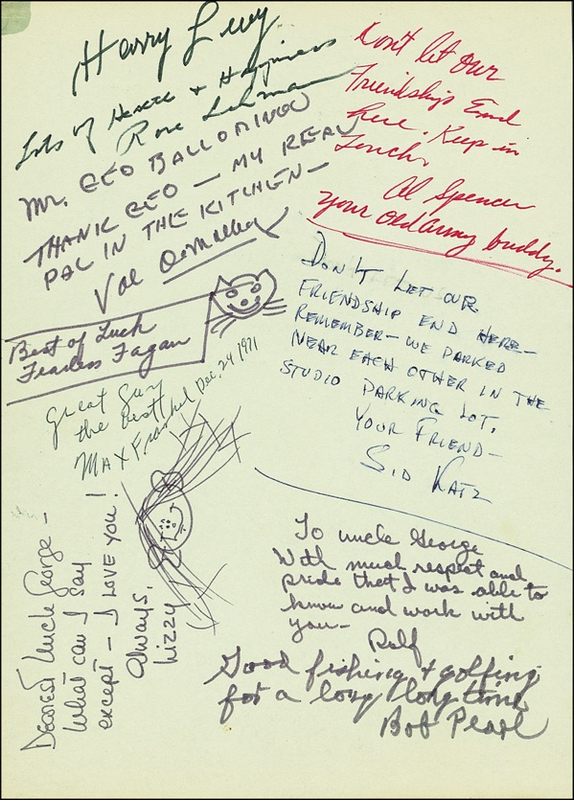 Harry Levy
Lots of Health & Happiness
Rose Lehman
Mr. GEO BALLOMINGO
THANK GEO — MY REAL
PAL IN THE KITCHEN —
Val O'Malley
Best of Luck
Fearless Fagan
Great Guy
the best!
MAX Frankel Dec, 24 1971
Dearest Uncle George —
What can I say
except — I LOVE you!
Always,
Lizzy
Don't let our
Friendships End
here. Keep in
Touch.
Al Spencer
your old army buddy.
DON'T LET OUR
FRIENDSHIP END HERE—
REMEMBER— WE PARKED
NEAR EACH OTHER IN THE
STUDIO PARKING LOT.
YOUR FRIEND—
SID KATZ
To uncle George
With much respect and
pride that I was able to
know and work with
you—
Rolf
Good fishing & golfing
for a long long time
Bob Pearl